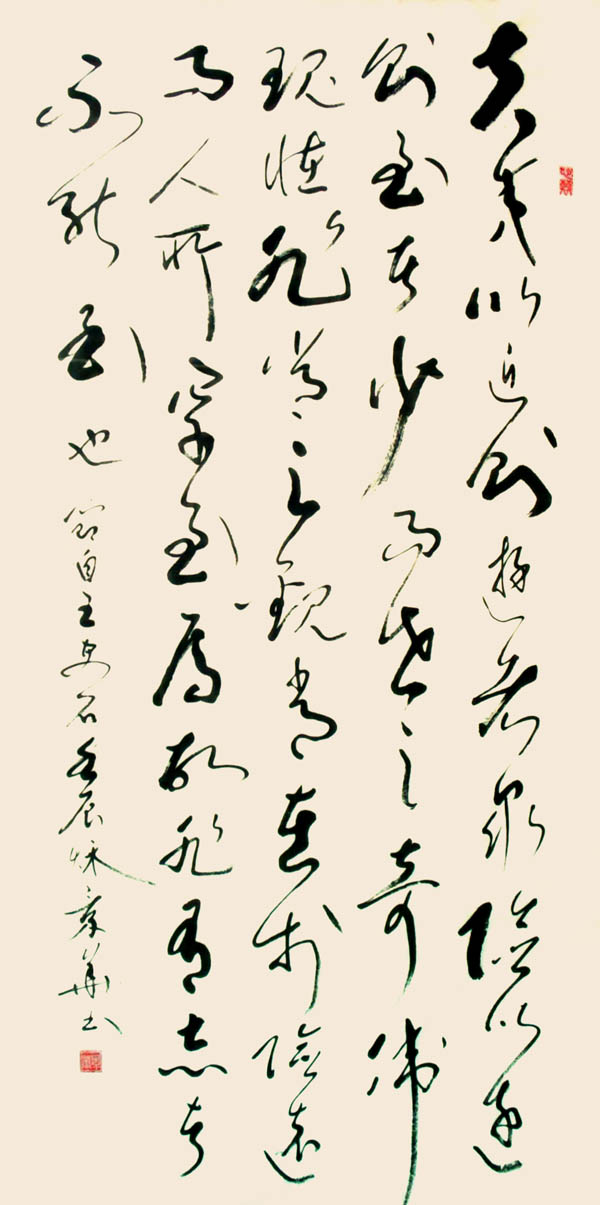 夫夷以近則遊者眾險以遠
則至者少而世之奇偉
瑰怪非常之觀常在於險遠
而人所罕至焉故非有志者
不能至也
自王安石壬辰秋華書